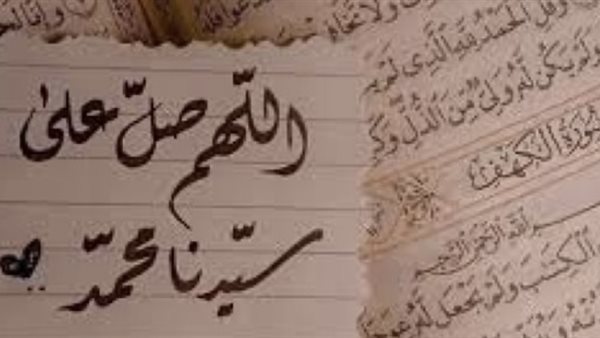 اللّهم صلّ على
سيّدنا محمّد
وَقُلِ الْحَمْدُ لِلَّهِ الَّذِي لَمْ
وَلَمْ يَكُن لَّهُ وَلِيٌّ مِّنَ الذُّلِّ وَكَ
سُورَةُ الْكَهْفِ
بِسْمِ اللَّهِ الرَّحْمَٰنِ الرَّحِيمِ
الْكِتَٰبَ وَلَمْ يَجْعَل لَّهُ عِوَجَا